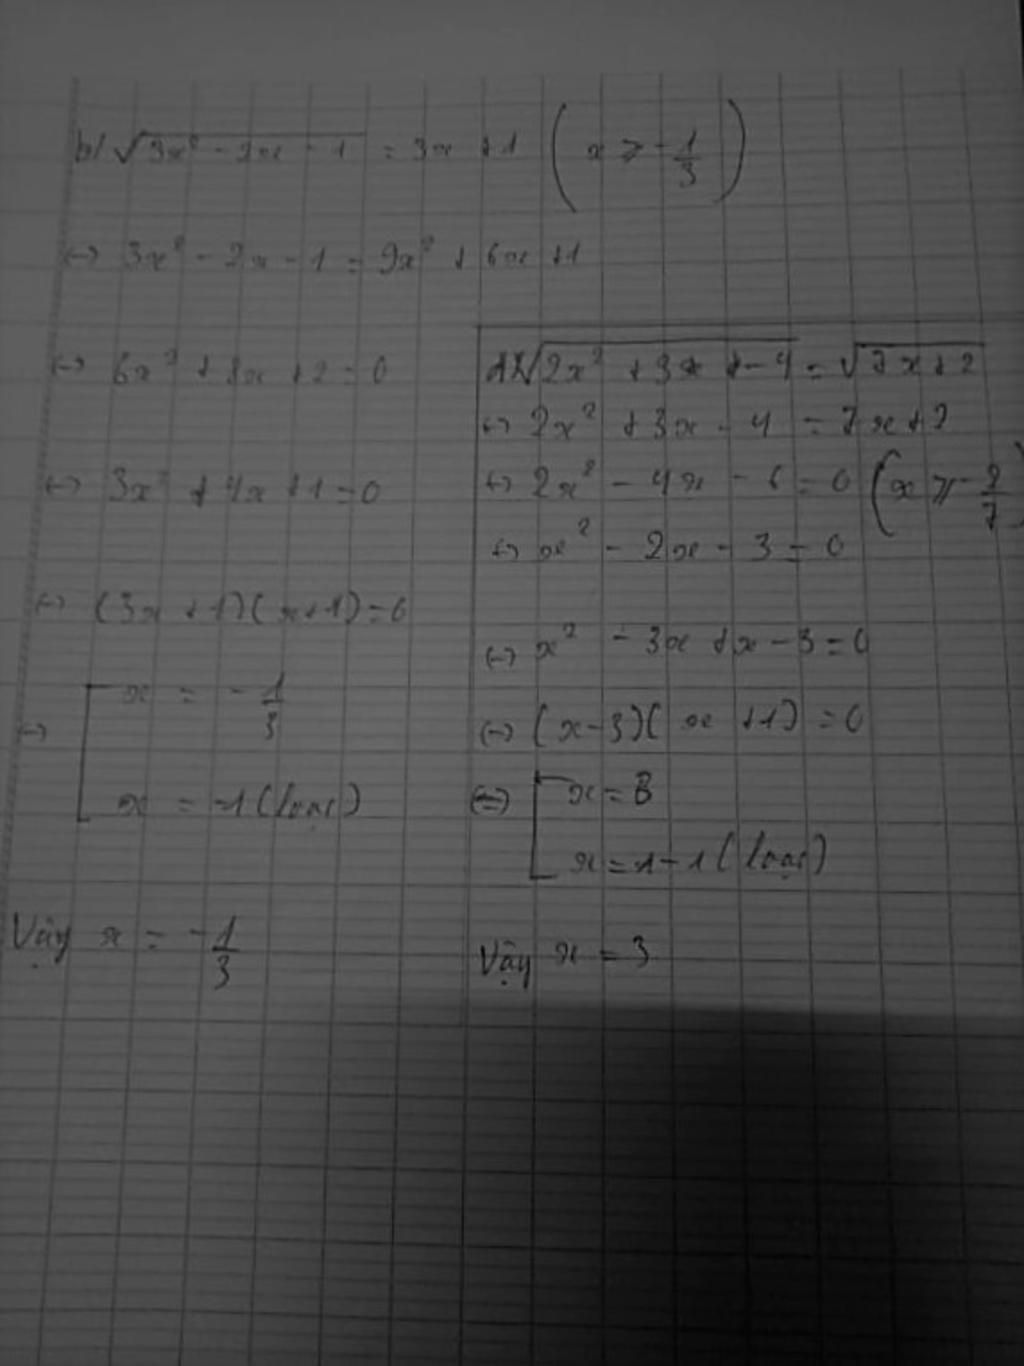 b/ √(3x² - 2x - 1) = 3x + 1 (x ≥ -1/3)
<-> 3x² - 2x - 1 = 9x² + 6x + 1
<-> 6x² + 8x + 2 = 0
<-> 3x² + 4x + 1 = 0
<-> (3x + 1)(x + 1) = 0
<-> [ x = -1/3
x = -1 (loại)
Vậy x = -1/3
d/ √(2x² + 3x - 4) = √(7x + 2)
<-> 2x² + 3x - 4 = 7x + 2
<-> 2x² - 4x - 6 = 0 (x ≥ -2/7)
<-> x² - 2x - 3 = 0
<-> x² - 3x + x - 3 = 0
<-> (x - 3)(x + 1) = 0
<=> [ x = 3
x = -1 (loại)
Vậy x = 3